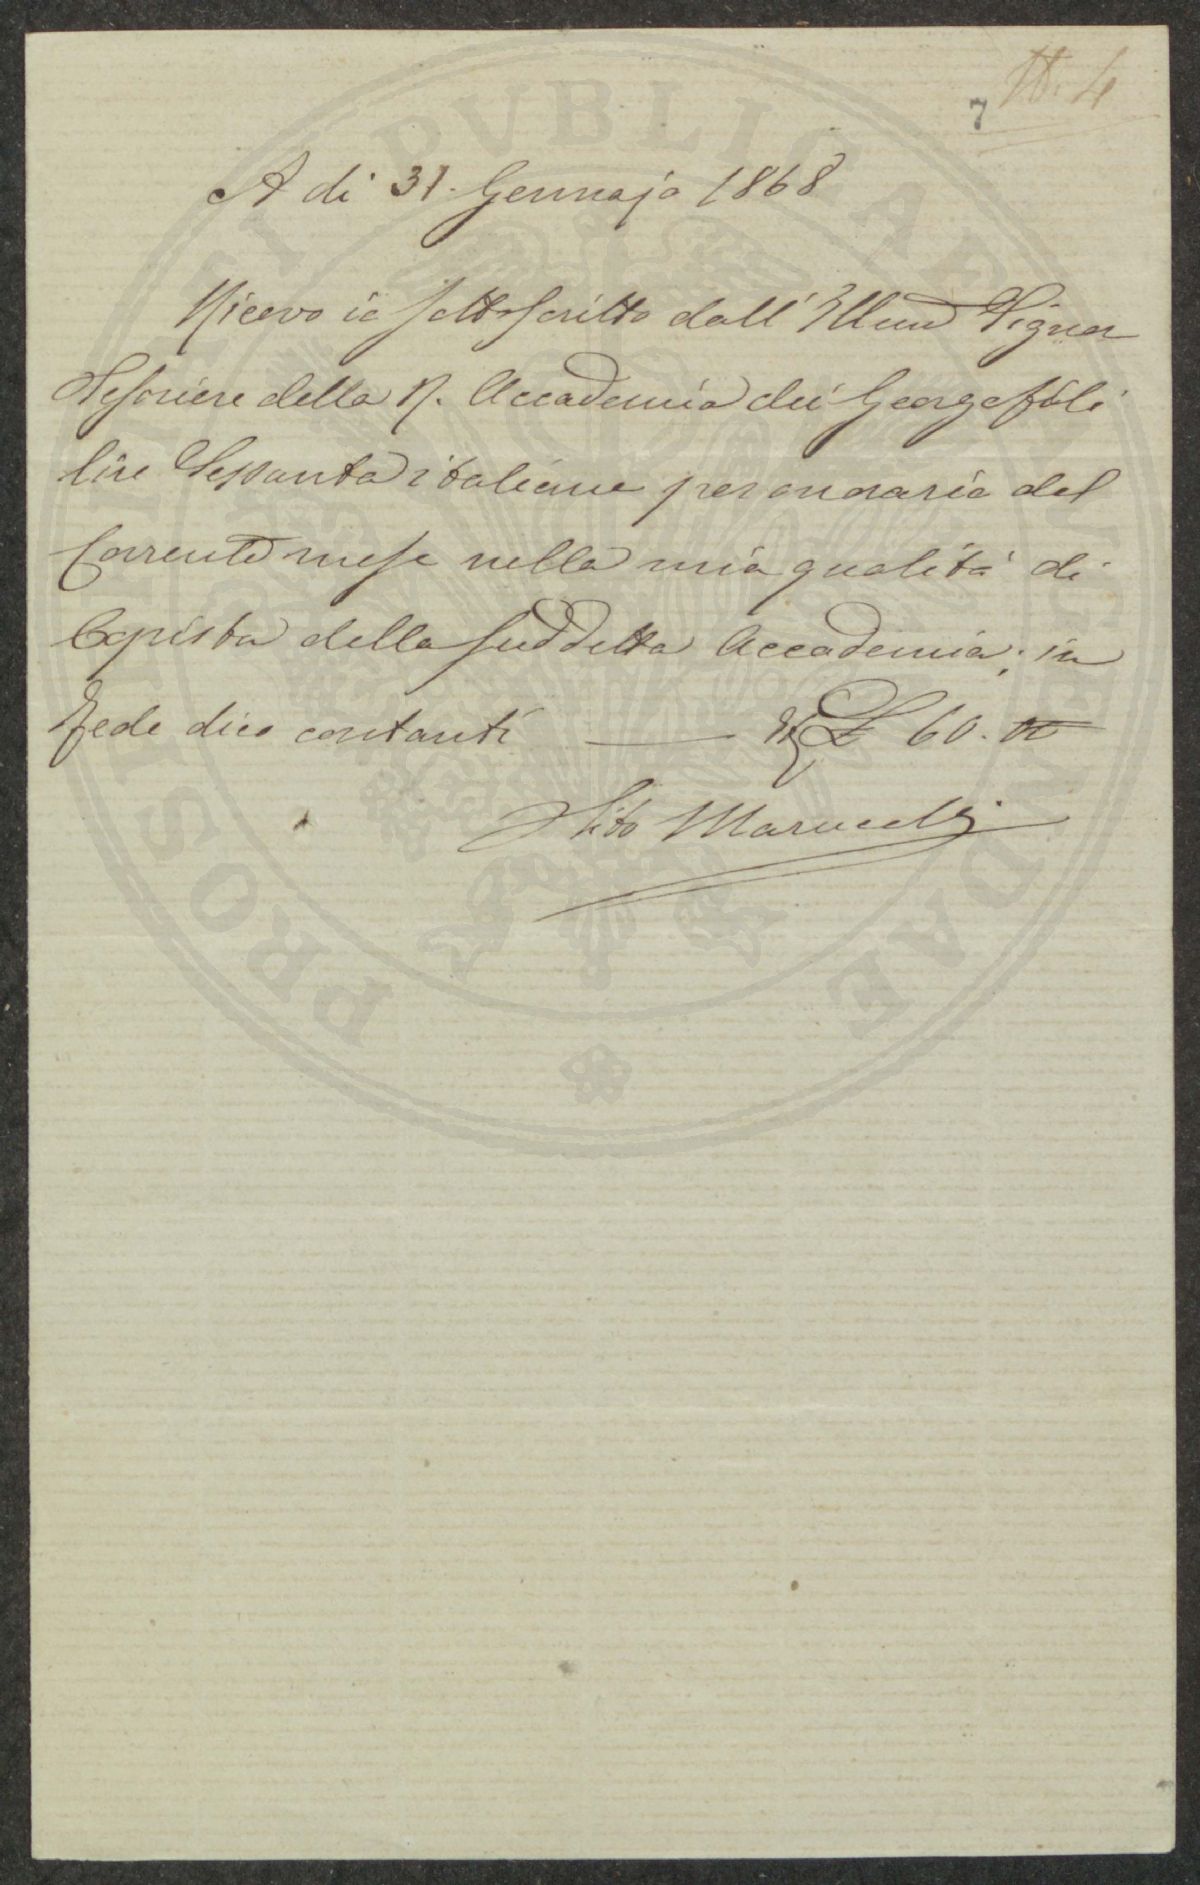 N. 4
7
A di 31. Gennajo 1868
Ricevo io sottoscritto dall' Illmo Signor
Tesoriere della R. Accademia dei Georgofili
lire Sessanta italiane per onorario del
Corrente mese nella mia qualità di
Copista della suddetta Accademia; in
fede dico contanti — £ 60. 00
Tito Marucelli
PROSPERITATI PUBLICAE AUGENDAE